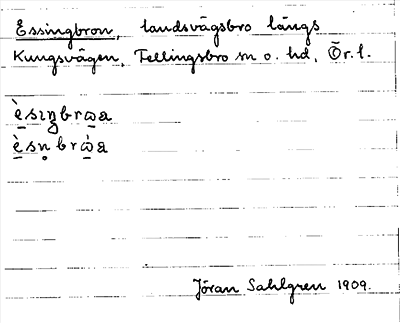 Essingbron, landsvägsbro längs
Kungsvägen, Fellingsbro sn o. hd, Ör. l.
è̱sıŋbrω̱a
è̱sṇbrὼ̱a
Jöran Sahlgren 1909.